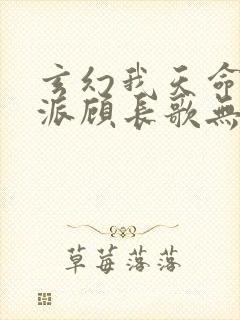 玄幻我天命
派顾长歌無
草莓落落